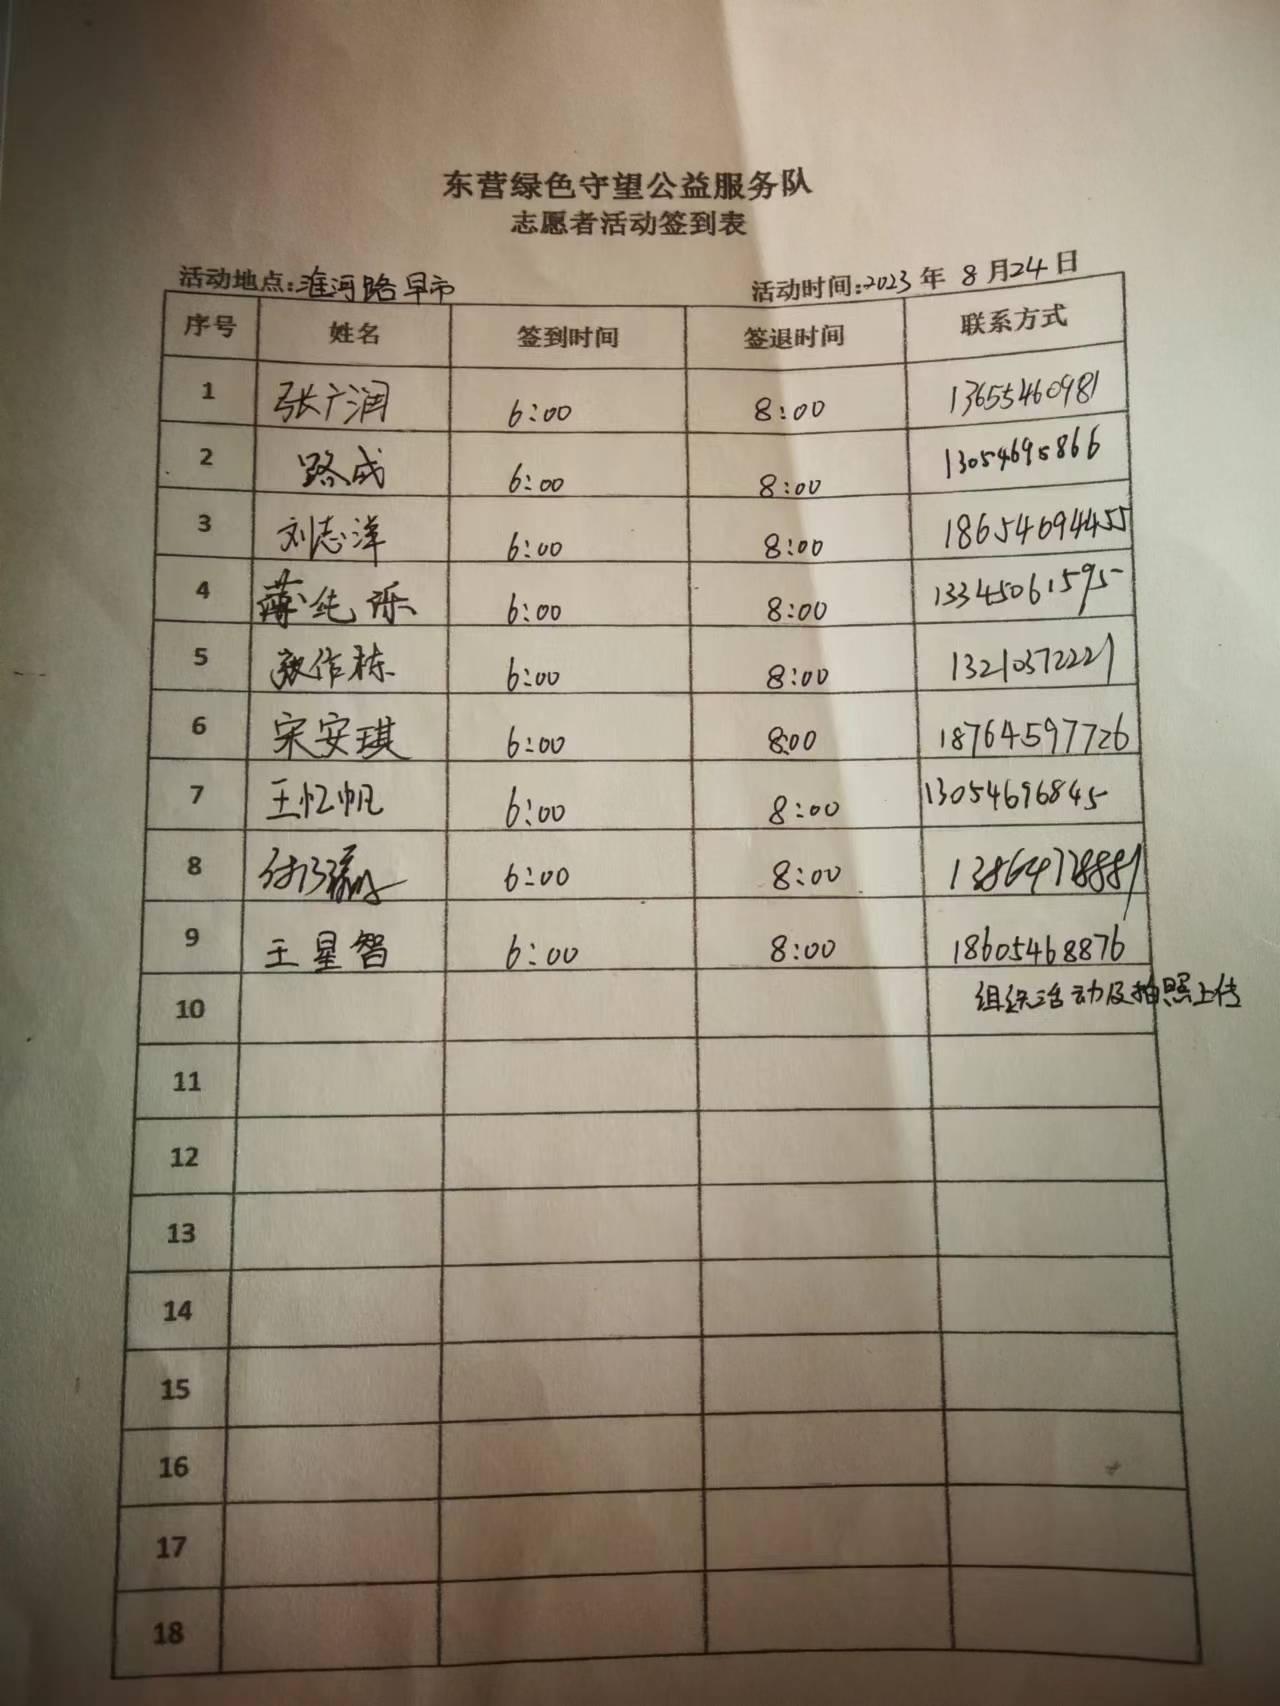 东营绿色守望公益服务队
志愿者活动签到表
活动地点:淮河路早市 活动时间:2023年8月24日
序号 姓名 签到时间 签退时间 联系方式
1 张广润 6:00 8:00 13655460981
2 路成 6:00 8:00 13054695866
3 刘志洋 6:00 8:00 18654694455
4 薄纯烁 6:00 8:00 13345061595
5 张作栋 6:00 8:00 13210372221
6 宋安琪 6:00 8:00 18764597726
7 王忆帆 6:00 8:00 13054696845
8 6:00 8:00 13864728881
9 王星智 6:00 8:00 18605468876
10 组织活动及拍照上传
11
12
13
14
15
16
17
18